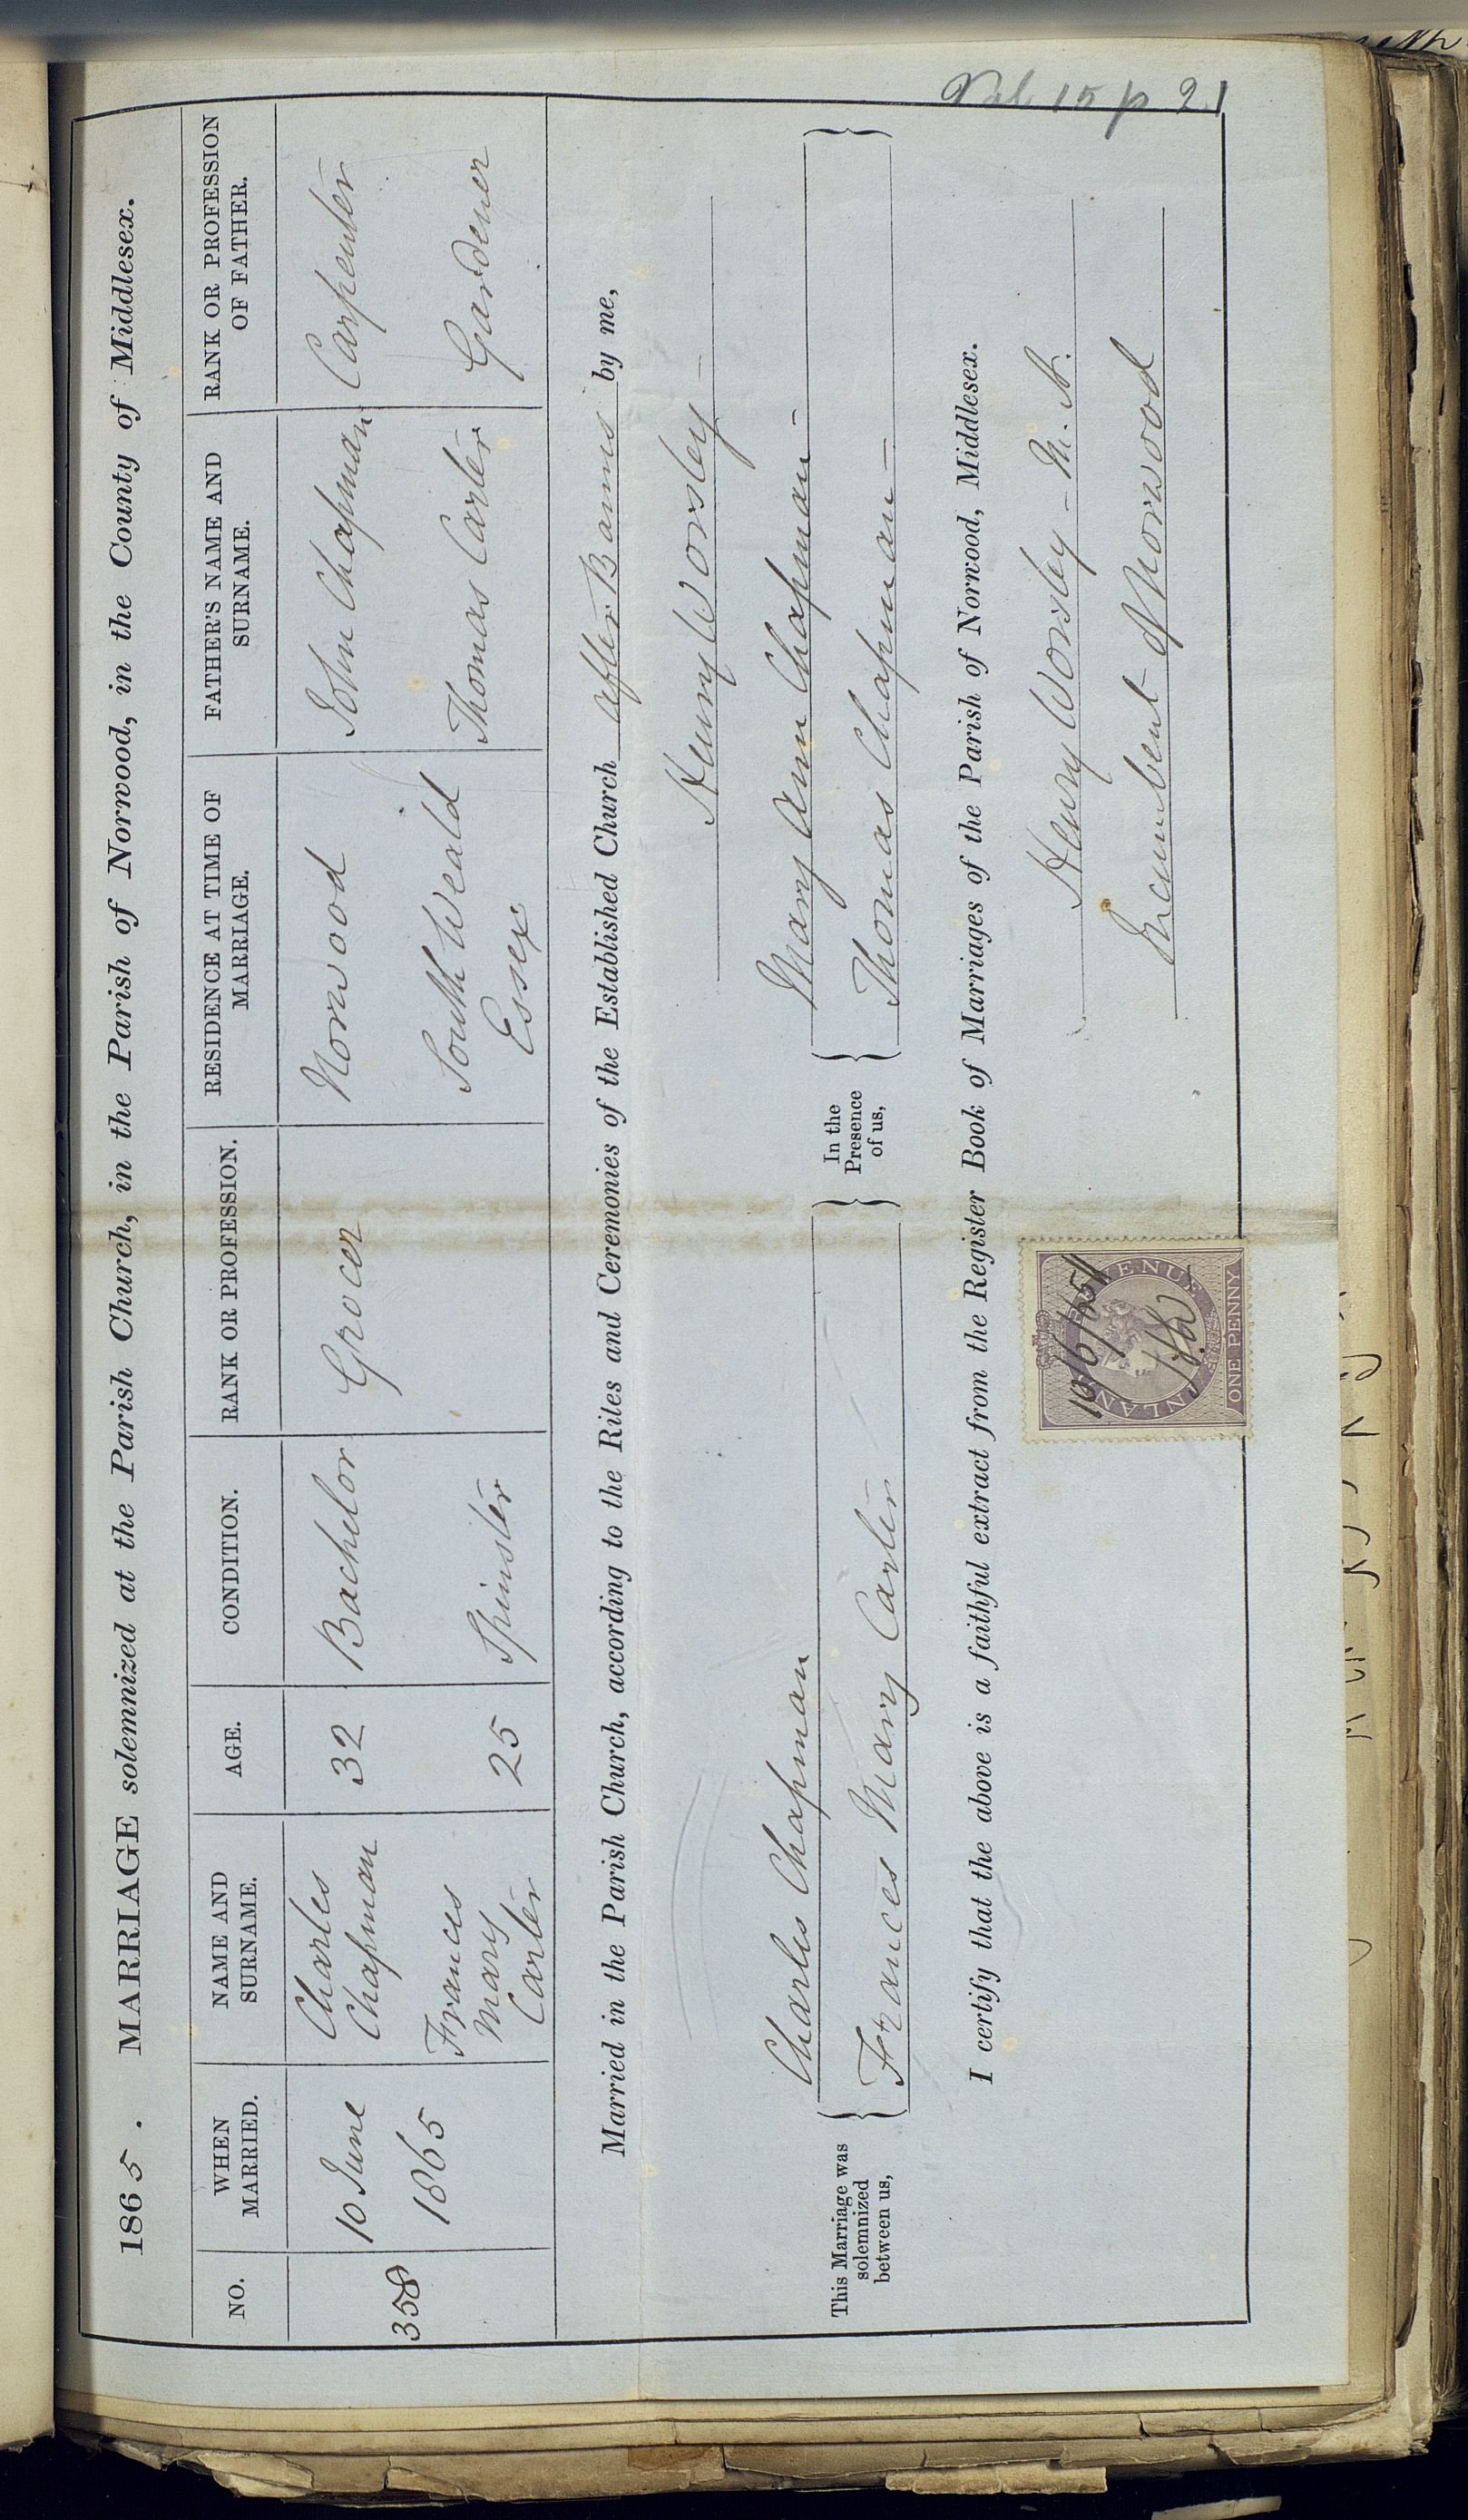 Vol 15 p 21
1865. MARRIAGE solemnized at the Parish Church, in the Parish of Norwood, in the County of Middlesex.
NO. WHEN MARRIED. NAME AND SURNAME. AGE. CONDITION. RANK OR PROFESSION. RESIDENCE AT TIME OF MARRIAGE. FATHER'S NAME AND SURNAME. RANK OR PROFESSION OF FATHER.
358
10 June
1865
Charles
Chapman
32 Bachelor Grocer Norwood John Chapman Carpenter
Frances
Mary
Carter
25 Spinster
South Weald
Essex
Thomas Carter Gardener
Married in the Parish Church, according to the Rites and Ceremonies of the Established Church after Banns by me,
Henry Worsley
This Marriage was
solemnized
between us,
Charles Chapman
Frances Mary Carter
In the
Presence
of us,
Mary Ann Chapman
Thomas Chapman
I certify that the above is a faithful extract from the Register Book of Marriages of the Parish of Norwood, Middlesex.
Henry Worsley - M. A.
Incumbent of Norwood
INLAND REVENUE
10/6/65
H.W
ONE PENNY